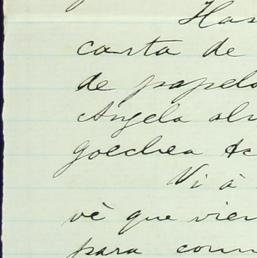 Has
carta de
de papel
Angela
goechea &c
Vi à
vè que vien
para com